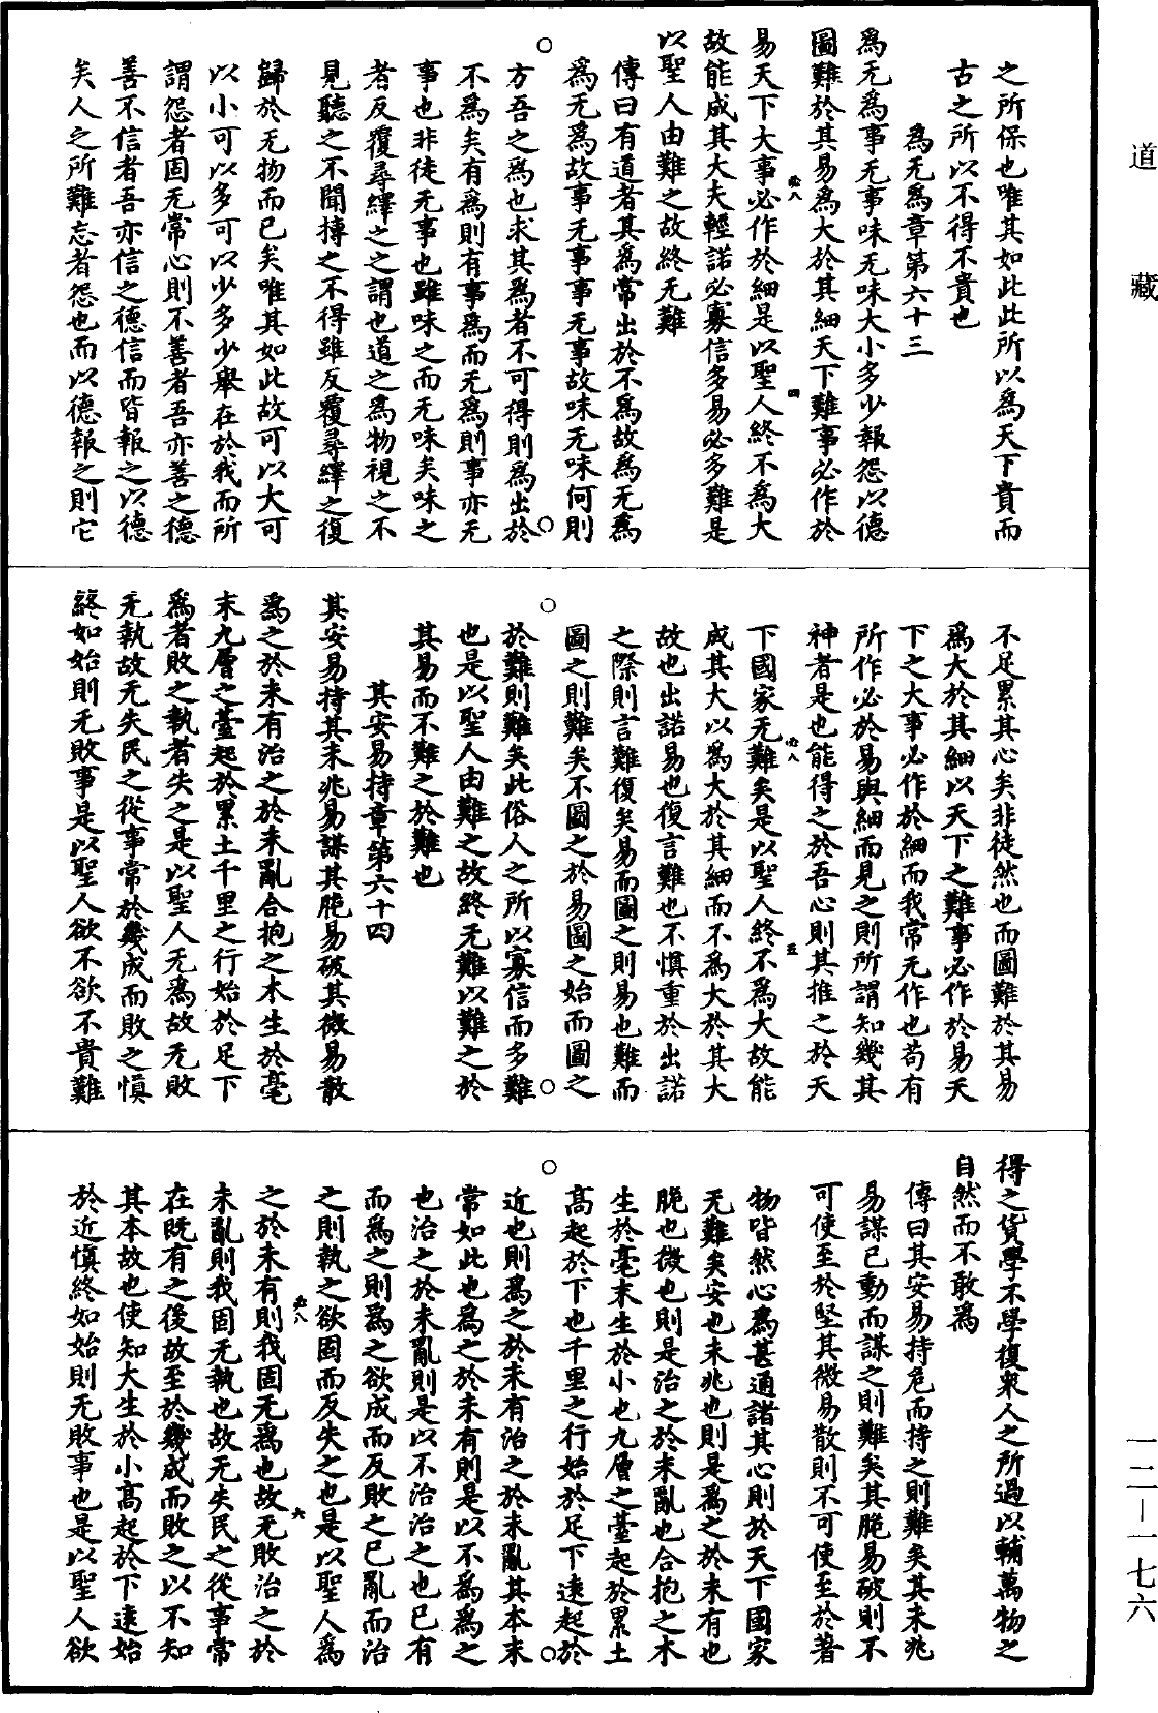 道藏
之所保也唯其如此此所以為天下貴而
古之所以不得不貴也
為无為章第六十三
為无為事无事味无味大小多少報怨以德
圖難於其易為大於其細天下難事必作於
易天下大事必作於細是以聖人終不為大
故能成其大夫輕諾必寡信多易必多難是
以聖人由難之故終无難
傳曰有道者其為常出於不為故為无為
為无為故事无事事无事故味无味何則
方吾之為也求其為者不可得則為出於
不為矣有為則有事為而无為則事亦无
事也非徒无事也雖味之而无味矣味之
者反覆尋繹之之謂也道之為物視之不
見聽之不聞摶之不得雖反覆尋繹之復
歸於无物而已矣唯其如此故可以大可
以小可以多可以少多少舉在於我而所
謂怨者固无常心則不善者吾亦善之德
善不信者吾亦信之德信而皆報之以德
矣人之所難忘者怨也而以德報之則它
不足累其心矣非徒然也而圖難於其易
為大於其細以天下之難事必作於易天
下之大事必作於細而我常无作也苟有
所作必於易與細而見之則所謂知幾其
神者是也能得之於吾心則其推之於天
下國家无難矣是以聖人終不為大故能
成其大以為大於其細而不為大於其大
故也出諾易也復言難也不慎重於出諾
之際則言難復矣易而圖之則易也難而
圖之則難矣不圖之於易圖之始而圖之
於難則難矣此俗人之所以寡信而多難
也是以聖人由難之故終无難以難之於
其易而不難之於難也
其安易持章第六十四
其安易持其未兆易謀其脆易破其微易散
為之於未有治之於未亂合抱之木生於毫
末九層之臺起於累土千里之行始於足下
為者敗之執者失之是以聖人无為故无敗
无執故无失民之從事常於幾成而敗之慎
終如始則无敗事是以聖人欲不欲不貴難
得之貨學不學復衆人之所過以輔萬物之
自然而不敢為
傳曰其安易持危而持之則難矣其未兆
易謀已動而謀之則難矣其脆易破則不
可使至於堅其微易散則不可使至於著
物皆然心為甚通諸其心則於天下國家
无難矣安也未兆也則是為之於未有也
脆也微也則是治之於未亂也合抱之木
生於毫末生於小也九層之臺起於累土
高起於下也千里之行始於足下遠起於
近也則為之於未有治之於未亂其本末
常如此也為之於未有則是以不為為之
也治之於未亂則是以不治治之也已有
而為之則為之欲成而反敗之已亂而治
之則執之欲固而反失之也是以聖人為
之於未有則我固无為也故无敗治之於
未亂則我固无執也故无失民之從事常
在既有之後故至於幾成而敗之以不知
其本故也使知大生於小高起於下遠始
於近慎終如始則无敗事也是以聖人欲
一二—一七六